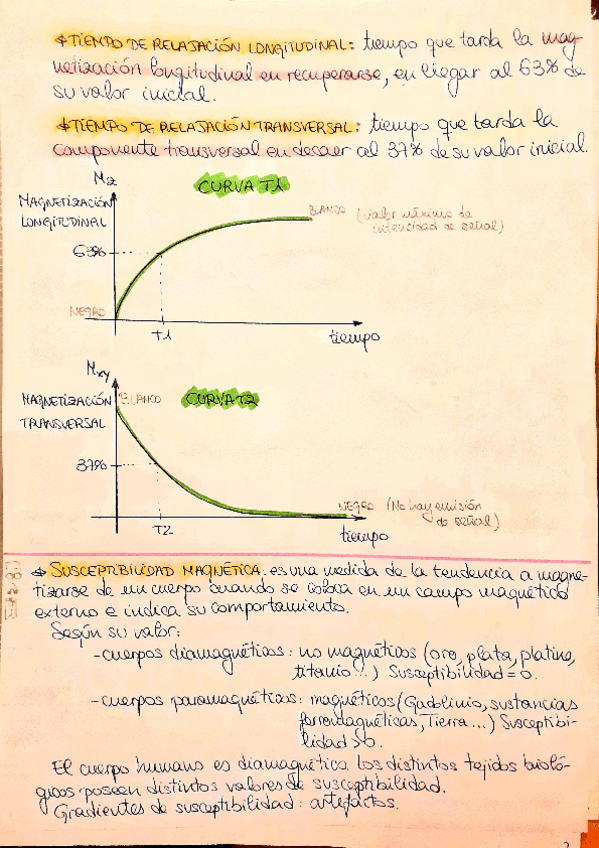 * TIEMPO DE RELAJACIÓN LONGITUDINAL: tiempo que tarda la mag-
netización longitudinal en recuperarse, en llegar al 63% de
su valor inicial.
* TIEMPO DE RELAJACIÓN TRANSVERSAL: tiempo que tarda la
componente transversal en decaer al 37% de su valor inicial.
Mz
CURVA T1
MAGNETIZACIÓN
LONGITUDINAL
BLANCO (valor máximo de
intensidad de señal)
63%
NEGRO
T1
tiempo
Mxy
MAGNETIZACIÓN
TRANSVERSAL
BLANCO
CURVA T2
37%
NEGRO (No hay emisión
de señal)
T2
tiempo
* SUSCEPTIBILIDAD MAGNÉTICA: es una medida de la tendencia a magne-
tizarse de un cuerpo cuando se coloca en un campo magnético
externo e indica su comportamiento.
Según su valor:
-cuerpos diamagnéticos: no magnéticos (oro, plata, platino,
titanio...) Susceptibilidad = 0.
-cuerpos paramagnéticos: magnéticos (Gadolinio, sustancias
ferromagnéticas, Tierra...) Susceptibi-
lidad > 0.
El cuerpo humano es diamagnético los distintos tejidos bioló-
gicos poseen distintos valores de susceptibilidad.
Gradientes de susceptibilidad: artefactos.
2